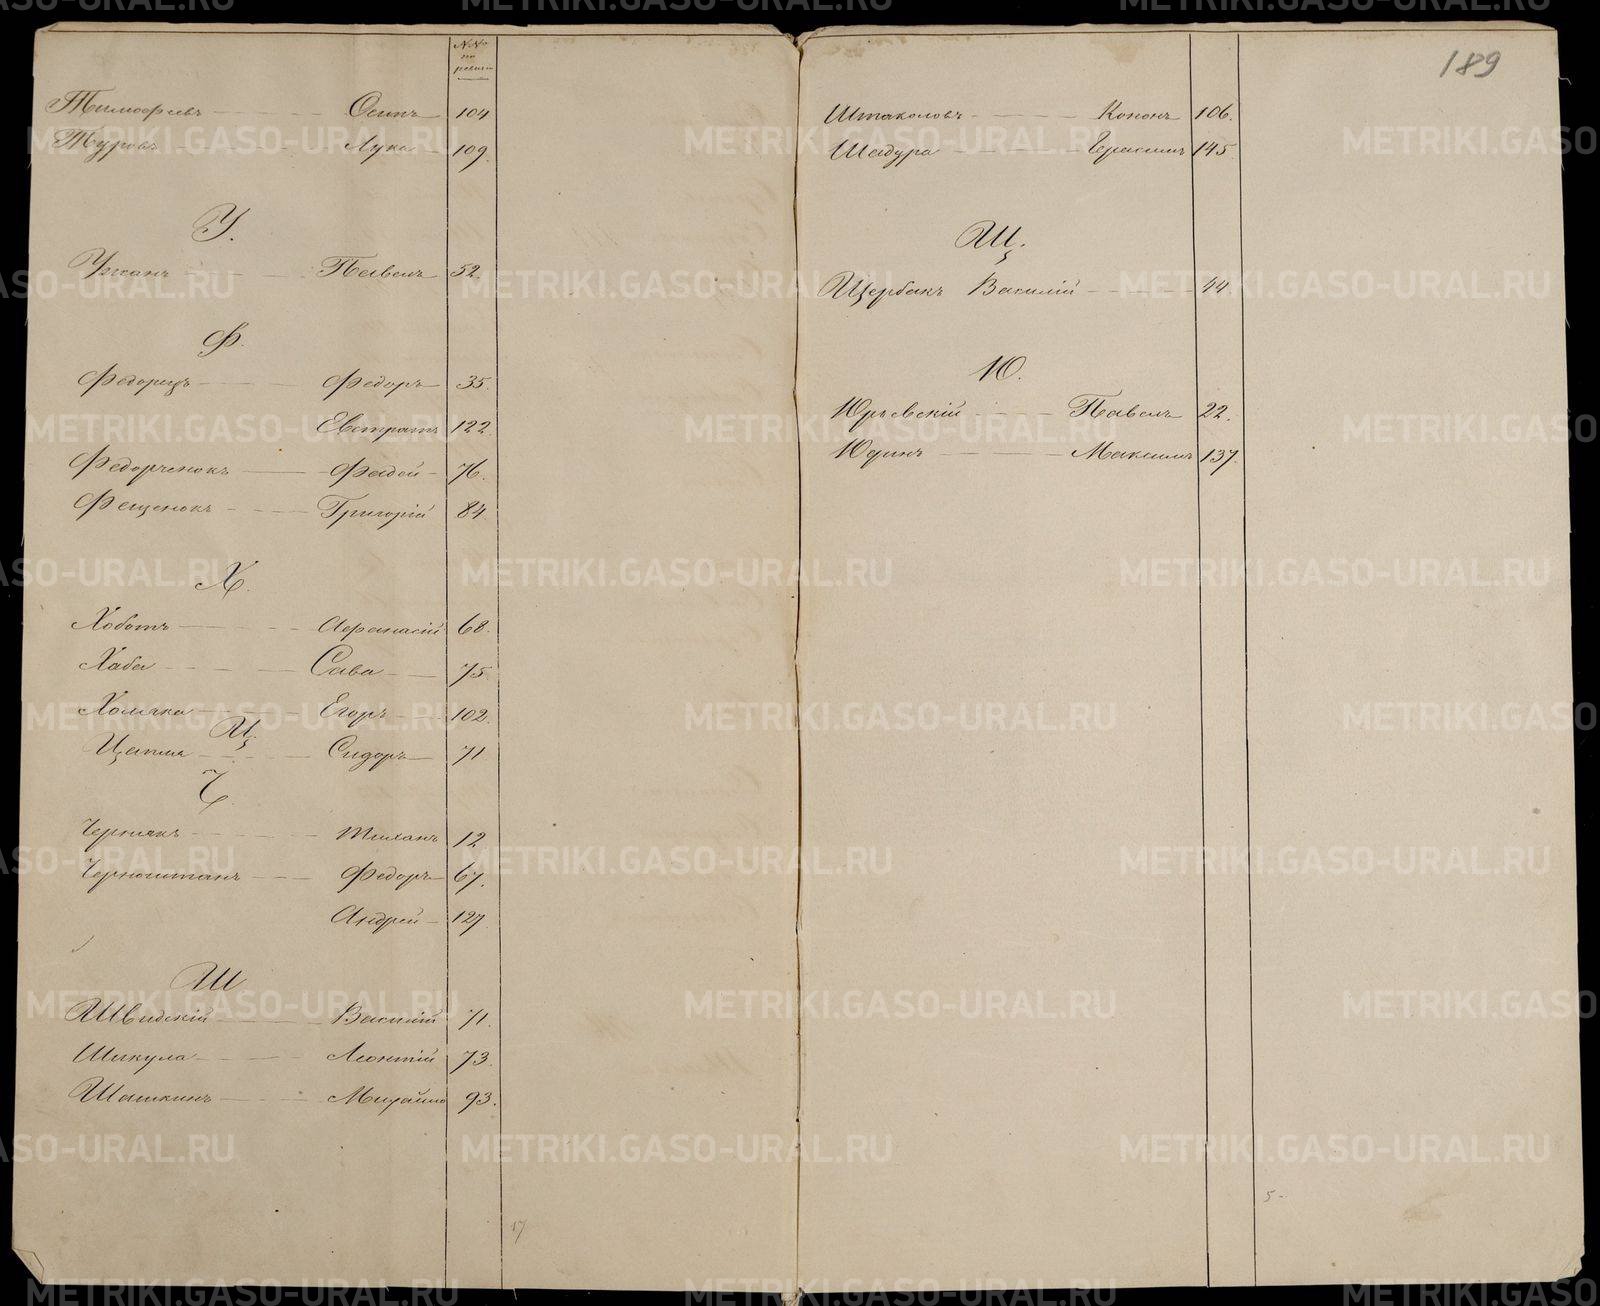 №№
по
ревизіи
Тимофѣевъ Осипъ 104
Туровъ Лука 109.
У.
Ужанъ Павелъ 52.
Ф.
Федорецъ Федоръ 35.
Евстратъ 122.
Федорченокъ Фадей 76.
Фещенокъ Григорій 84.
Х.
Хоботъ Афанасій 68.
Хаба Сава 75.
Хомячка Егоръ 102.
Ц.
Цапля Сидоръ 71
Ч.
Чернякъ 12.
Черноштанъ Федоръ 67.
Андрей 127
Ш
Швидскій Василій 71.
Шикула Леонтій 73.
Шашкинъ Михайло 93.
17
189
Штаколовъ Кононъ 106.
Шадура Герасимъ 145.
Щ.
Щербакъ Василій 44.
Ю.
Юрьевскій Павелъ 22.
Юдинъ Максимъ 137.
5-
METRIKI.GASO-URAL.RU